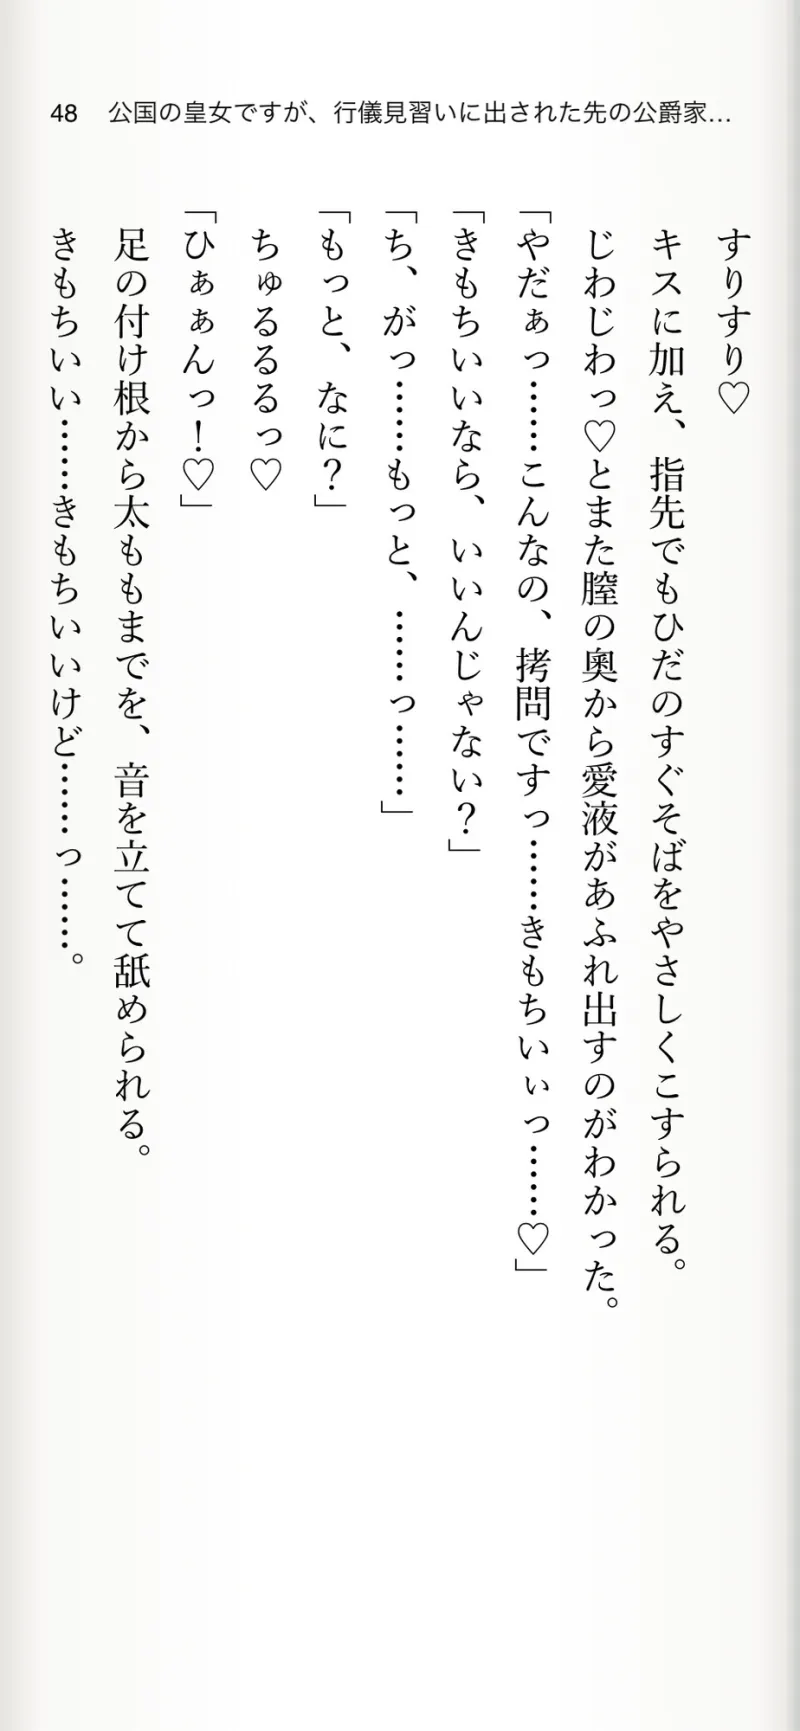 48 公国の皇女ですが、行儀見習いに出された先の公爵家…
すりすり♡
キスに加え、指先でもひだのすぐそばをやさしくこすられる。
じわじわっ♡とまた膣の奥から愛液があふれ出すのがわかった。
「やだぁっ……こんなの、拷問ですっ……きもちいぃっ……♡」
「きもちいいなら、いいんじゃない？」
「ち、がっ……もっと、……っ……」
「もっと、なに？」
ちゅるるるっ♡
「ひぁぁんっ！♡」
足の付け根から太ももまでを、音を立てて舐められる。
きもちいい……きもちいいけど……っ……。